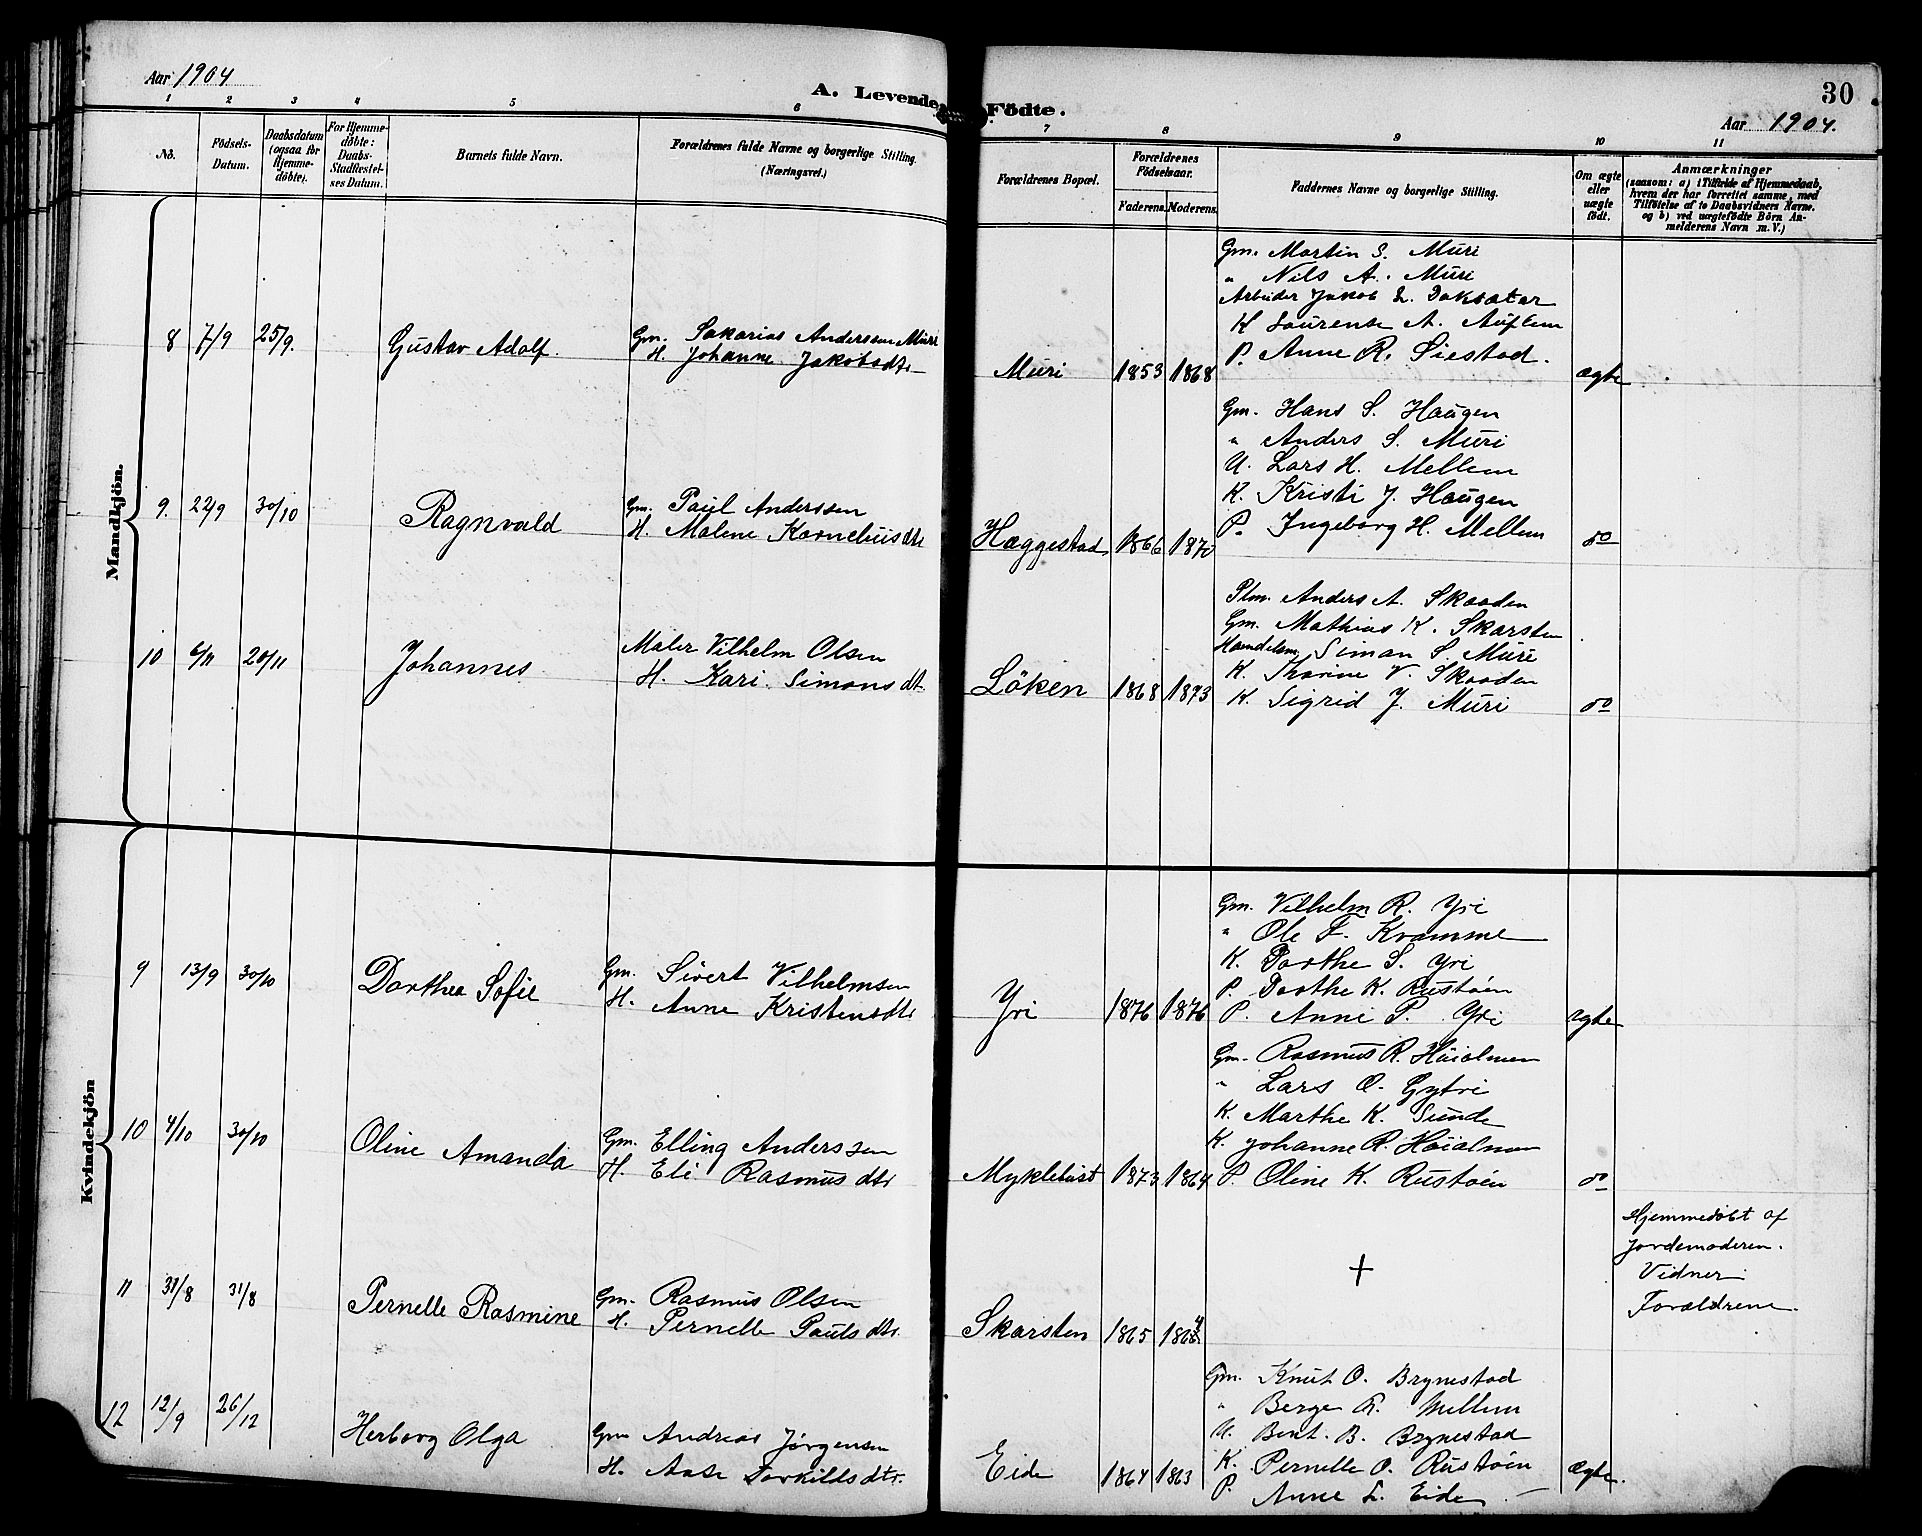 Aar 1904
A. Levende Födte.
30
Aar 1904.
1 2 3 4 5 6 7 8 9 10 11
No.
Födsels-
Datum.
Daabsdatum
(ogsaa for
Hjemme-
døbte).
For Hjemme-
døbte:
Daabs-
Stadfestel-
ses Datum.
Barnets fulde Navn.
Forældrenes fulde Navne og borgerlige Stilling.
(Næringsvei.)
Forældrenes Bopæl.
Forældrenes
Födselsaar.
Faderens. Moderens.
Faddernes Navne og borgerlige Stilling.
Om ægte
eller
uægte
født.
Anmærkninger
(saasom: a) i Tilfælde af Hjemmedaab,
hvem der har forrettet samme, med
Tilføielse af to Daabsvidners Navne.
og b) ved uægtefödte Börn An-
melderens Navn m. V.)
Mandkjön.
Gm. Martin S. Muri
" Nils A. Muri
Arbeider Jakob L. Doksæter
K Laurense A. Auflem
8 7/9 25/9. Gustav Adolf. Gm. Sakarias Anderssen Muri
H. Johanne Jakobsdtr
Muri 1853 1868 P. Anne R. Siestad. ægte
Gm. Hans S. Haugen
" Anders S. Muri
U. Lars H. Mellem
K. Kristi J. Haugen
9. 22/9 30/10 Ragnvald Gm. Paul Anderssen
H. Malene Korneliusdtr
Hæggestad 1866 1870 P. Ingeborg H. Mellem do
Plm. Anders A. Skaaden
Gm. Mathias K. Skarsten
Handelsm. Simon S. Muri
K. Thorine V. Skaaden
10 6/11 20/11 Johannes Maler Vilhelm Olsen
H. Kari Simonsdt.
Löken 1868 1873 K. Sigrid J. Muri do
Kvindekjön
Gm. Vilhelm R. Yri
" Ole F. Kvamme
K. Dorthe S. Yri
P. Dorthe K. Rustøen
9 13/9 30/10 Dorthea Sofie Gm. Sivert Vilhelmsen
H. Anne Kristensdtr
Yri 1876 1876 P. Anni P. Yri ægte
Gm. Rasmus R. Høialmen
" Lars O. Gytri
K. Marthe K. Sunde
K. Johanne R. Høialmen
10 4/10 30/10 Oline Amanda Gm. Elling Anderssen
H. Eli Rasmusdtr
Myklebust 1873 1864 P. Oline K. Rustøen do
11 31/8 31/8 Pernelle Rasmine Gm. Rasmus Olsen
H. Pernelle Paulsdtr.
Skarsten 1865 1864 +
Hjemmedøbt af
Jordemoderen.
Vidner:
Forældrene.
Gm. Knut O. Brynestad
" Berge R. Mellem
U. Bent. B. Brynestad
K. Pernelle O. Rustøen
12 12/9 26/12 Herborg Olga Gm Andreas Jørgensen
H. Aase Torkillsdtr.
Eide 1864 1863 P. Anne L. Eide. Ægte.